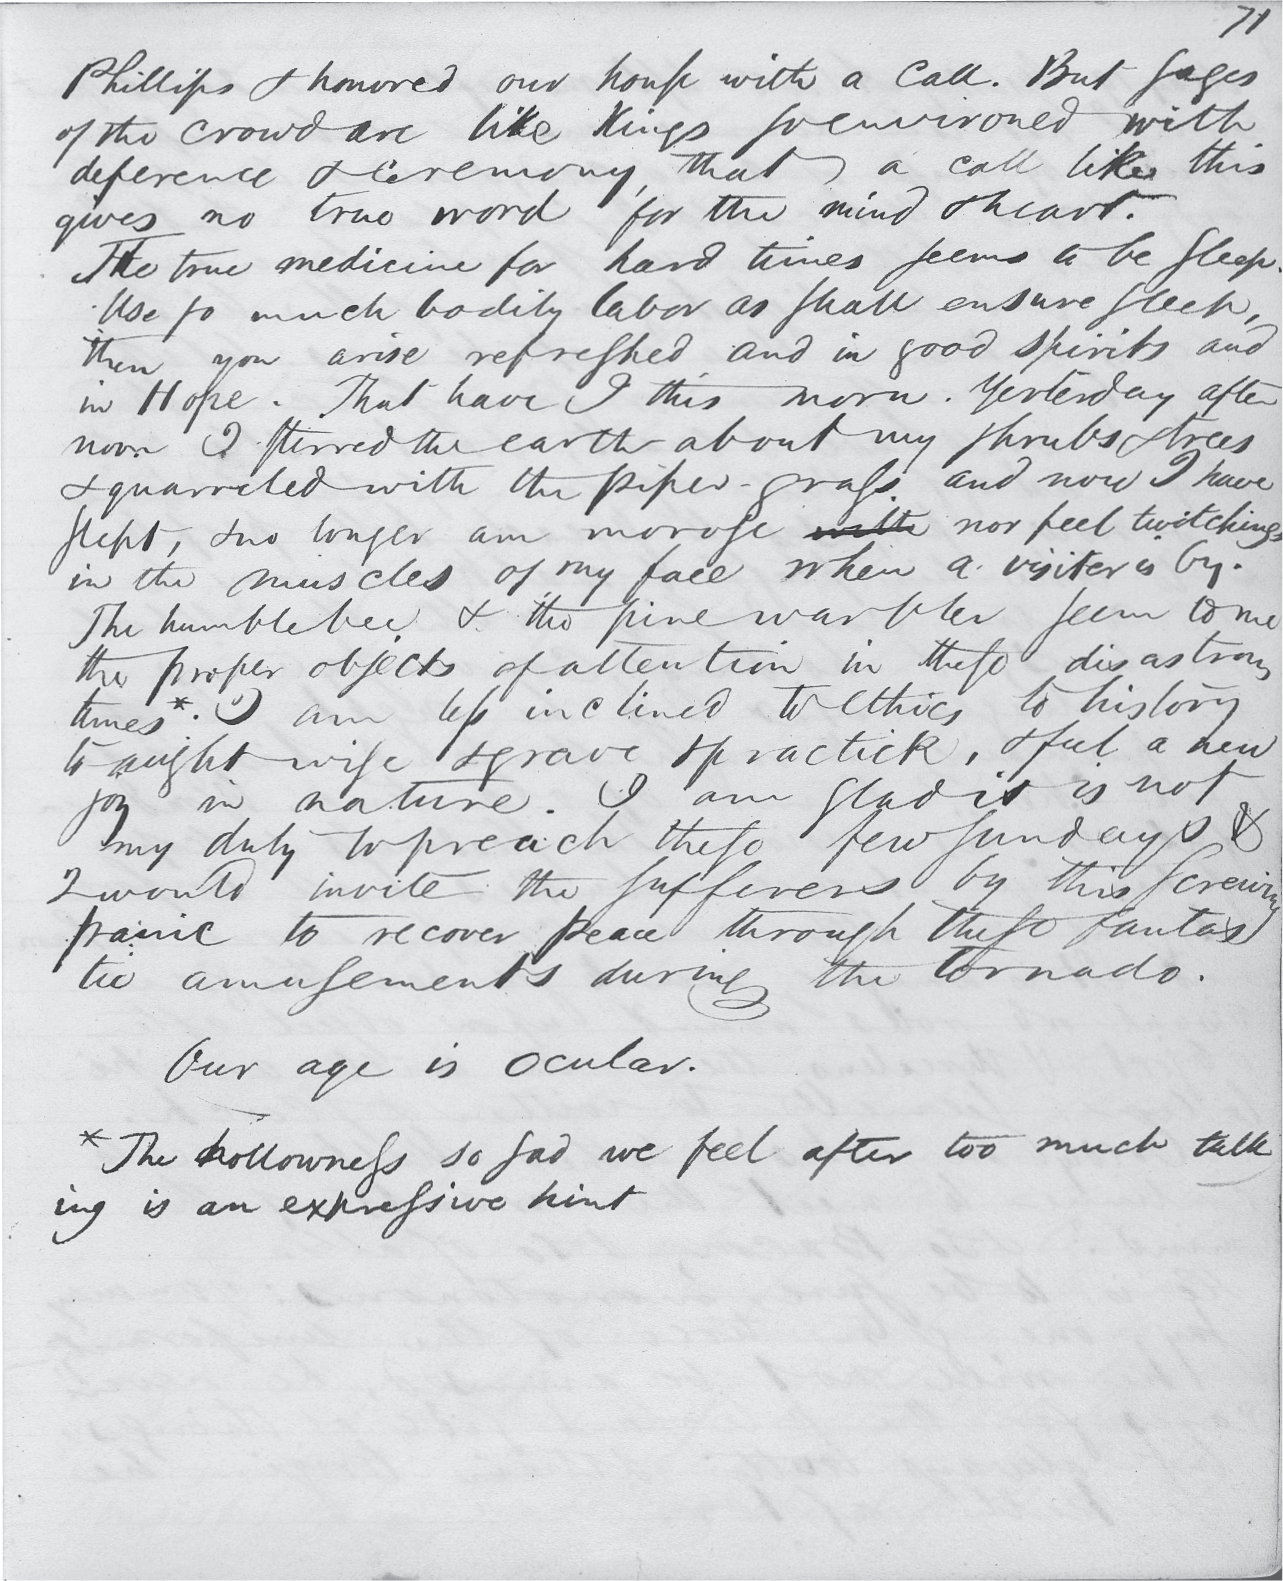 71
Phillips & honored our house with a call. But sages
of the crowd are like Kings so environed with
deference & ceremony, that a call like this
gives no true word for the mind & heart.
The true medicine for hard times seems to be sleep.
Use so much bodily labor as shall ensure sleep,
then you arise refreshed and in good spirits and
in Hope. That have I this morn. Yesterday after
noon I stirred the earth about my shrubs & trees
& quarreled with the piper-grass and now I have
slept, & no longer am morose with nor feel twitchings
in the muscles of my face when a visiter is by.
The humblebee & the pine warbler seem to me
the proper objects of attention in these disastrous
times*. I am less inclined to ethics to history
to aught wise & grave & practick, & feel a new
joy in nature. I am glad it is not
my duty to preach these few sundays &
I would invite the sufferers by this screwing
panic to recover peace through these fantas
tic amusements during the tornado.
Our age is ocular.
*The hollowness so sad we feel after too much talk
ing is an expressive hint